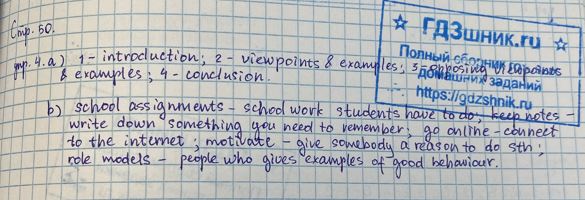 Стр. 50.
упр. 4. a) 1 - introduction; 2 - viewpoints & examples; 3 - opposing viewpoints
& examples; 4 - conclusion.
b) school assignments - school work students have to do; keep notes -
write down something you need to remember; go online - connect
to the internet; motivate - give somebody a reason to do sth;
role models - people who gives examples of good behaviour.
☆ ГДЗшник.ru ☆
Полный сборник
домашних заданий
https://gdzshnik.ru